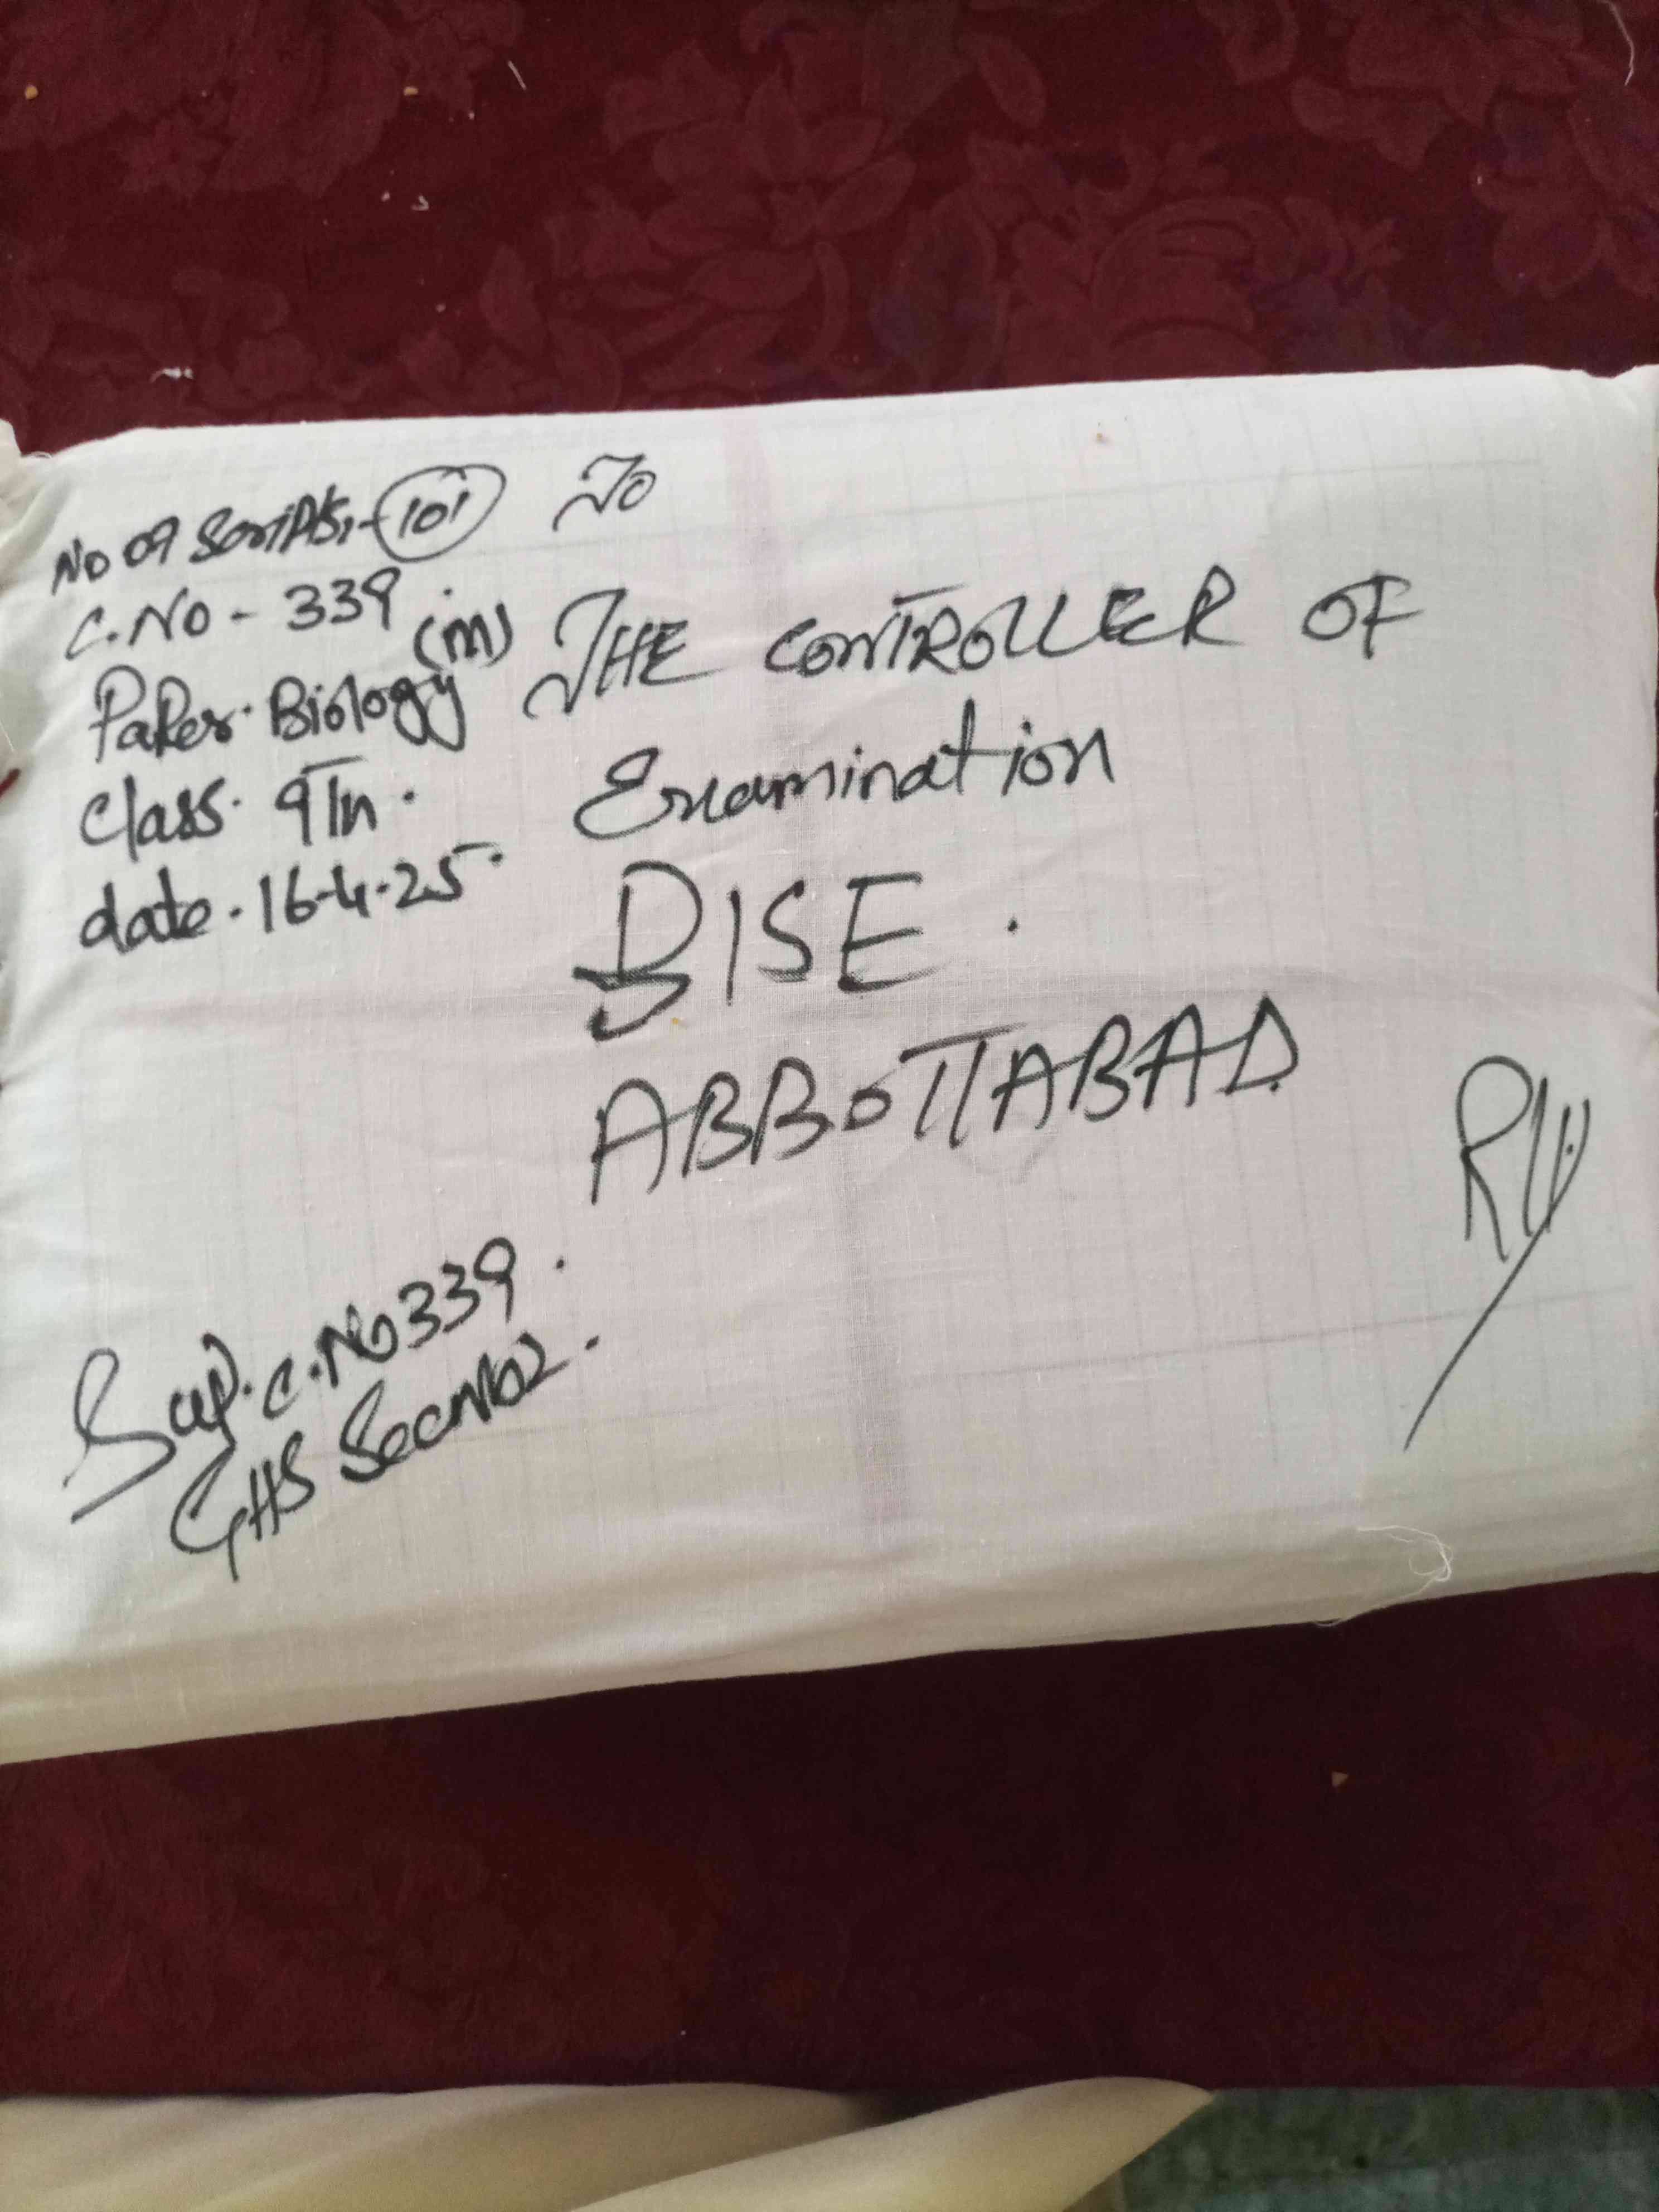 No of Scripts, - 101
C.No - 339.
Paper. Biology (m)
class. 9Th.
date. 16-4-25.
To
THE CONTROLLER OF
Examination
BISE.
ABBOTTABAD
Sup. C.No 339.
GHS Sec No2.